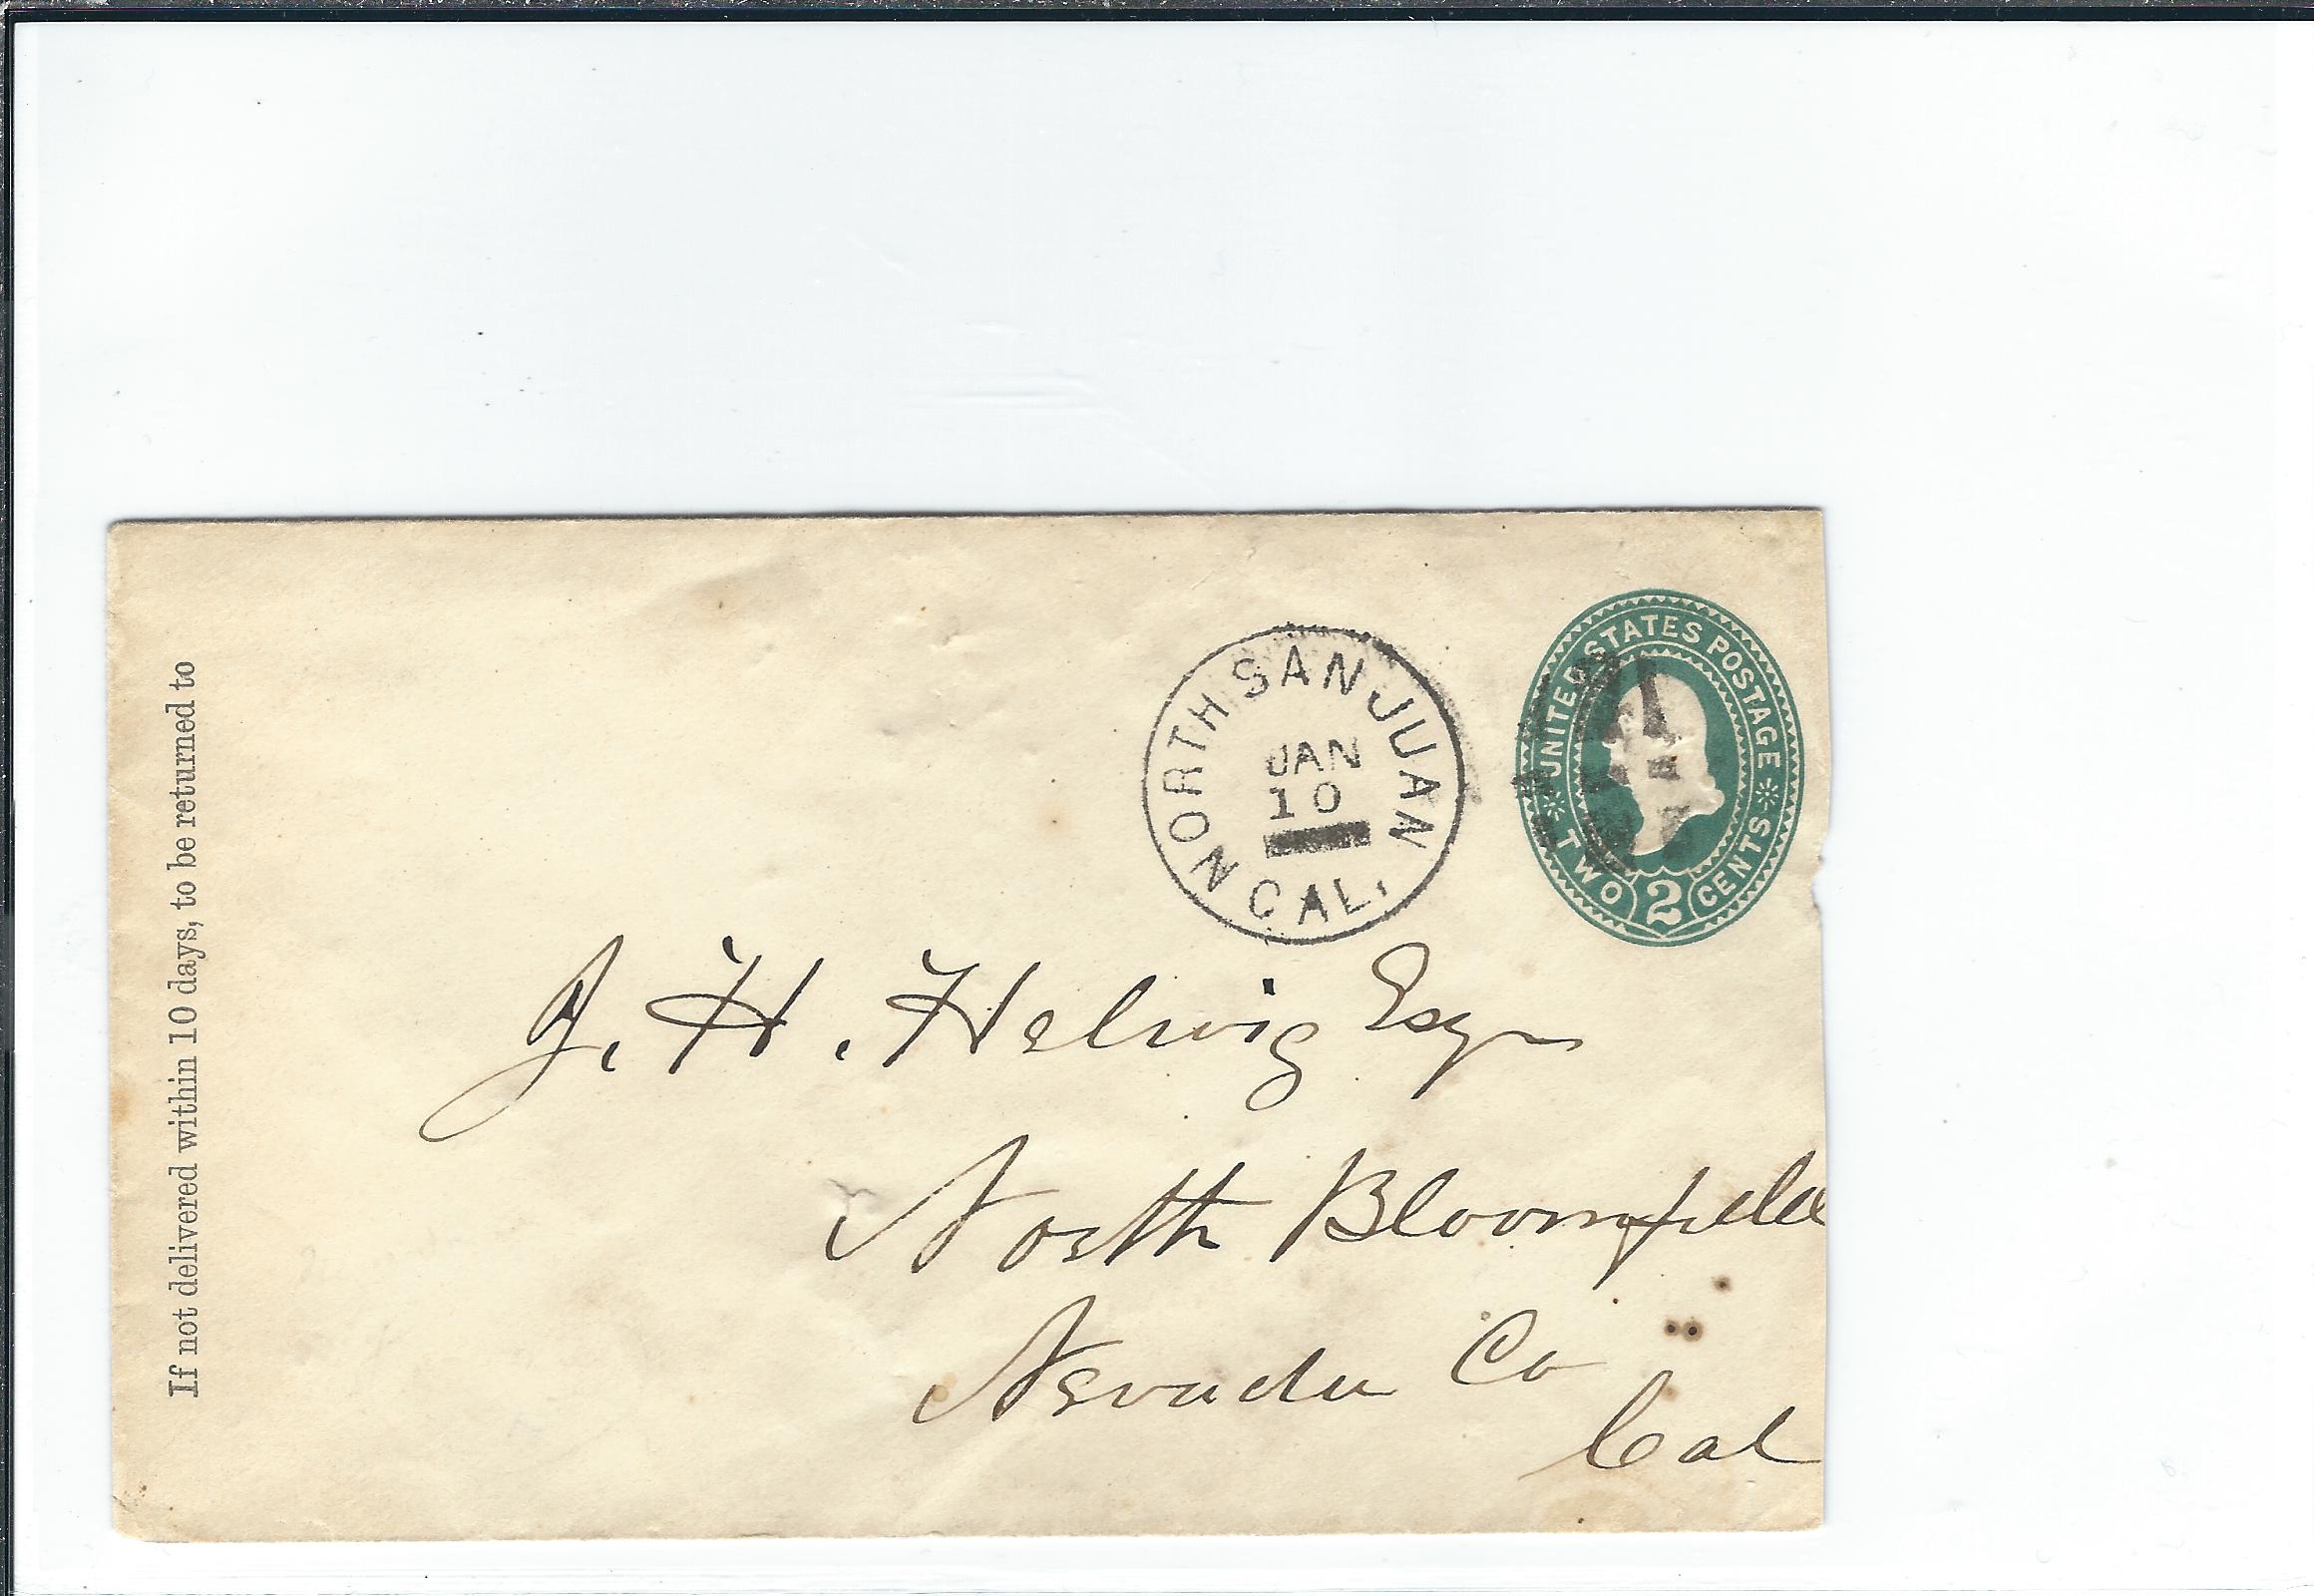 If not delivered within 10 days, to be returned to
NORTH SAN JUAN
JAN
10
CAL.
UNITED STATES POSTAGE
TWO 2 CENTS
J. H. Helwig Esq
North Bloomfield
Nevada Co
Cal